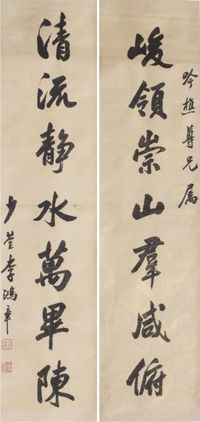 吟樵尊兄属
峻領崇山羣咸俯
清流靜水萬畢陳
少荃李鴻章